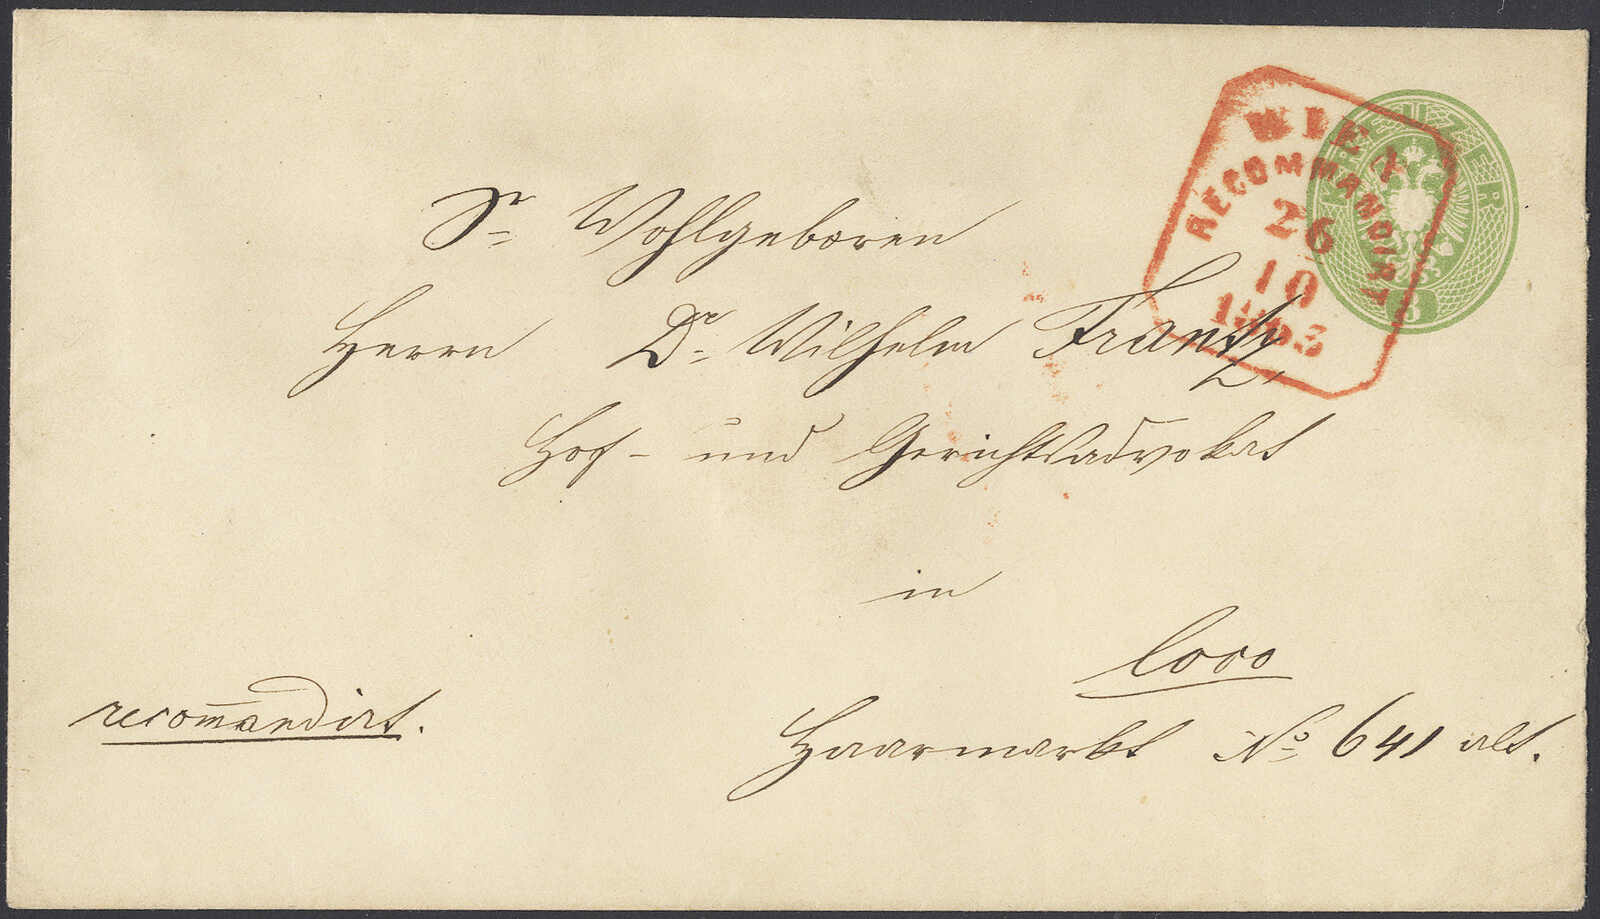 WIEN
RECOMMANDIRT
26
10
1863
KREUZER
3
Sr Wohlgeboren
Herrn Dr. Wilhelm Frantz,
Hof- und Gerichtsadvokat
in
loco
recommandirt.
Haarmarkt No 641 alt.